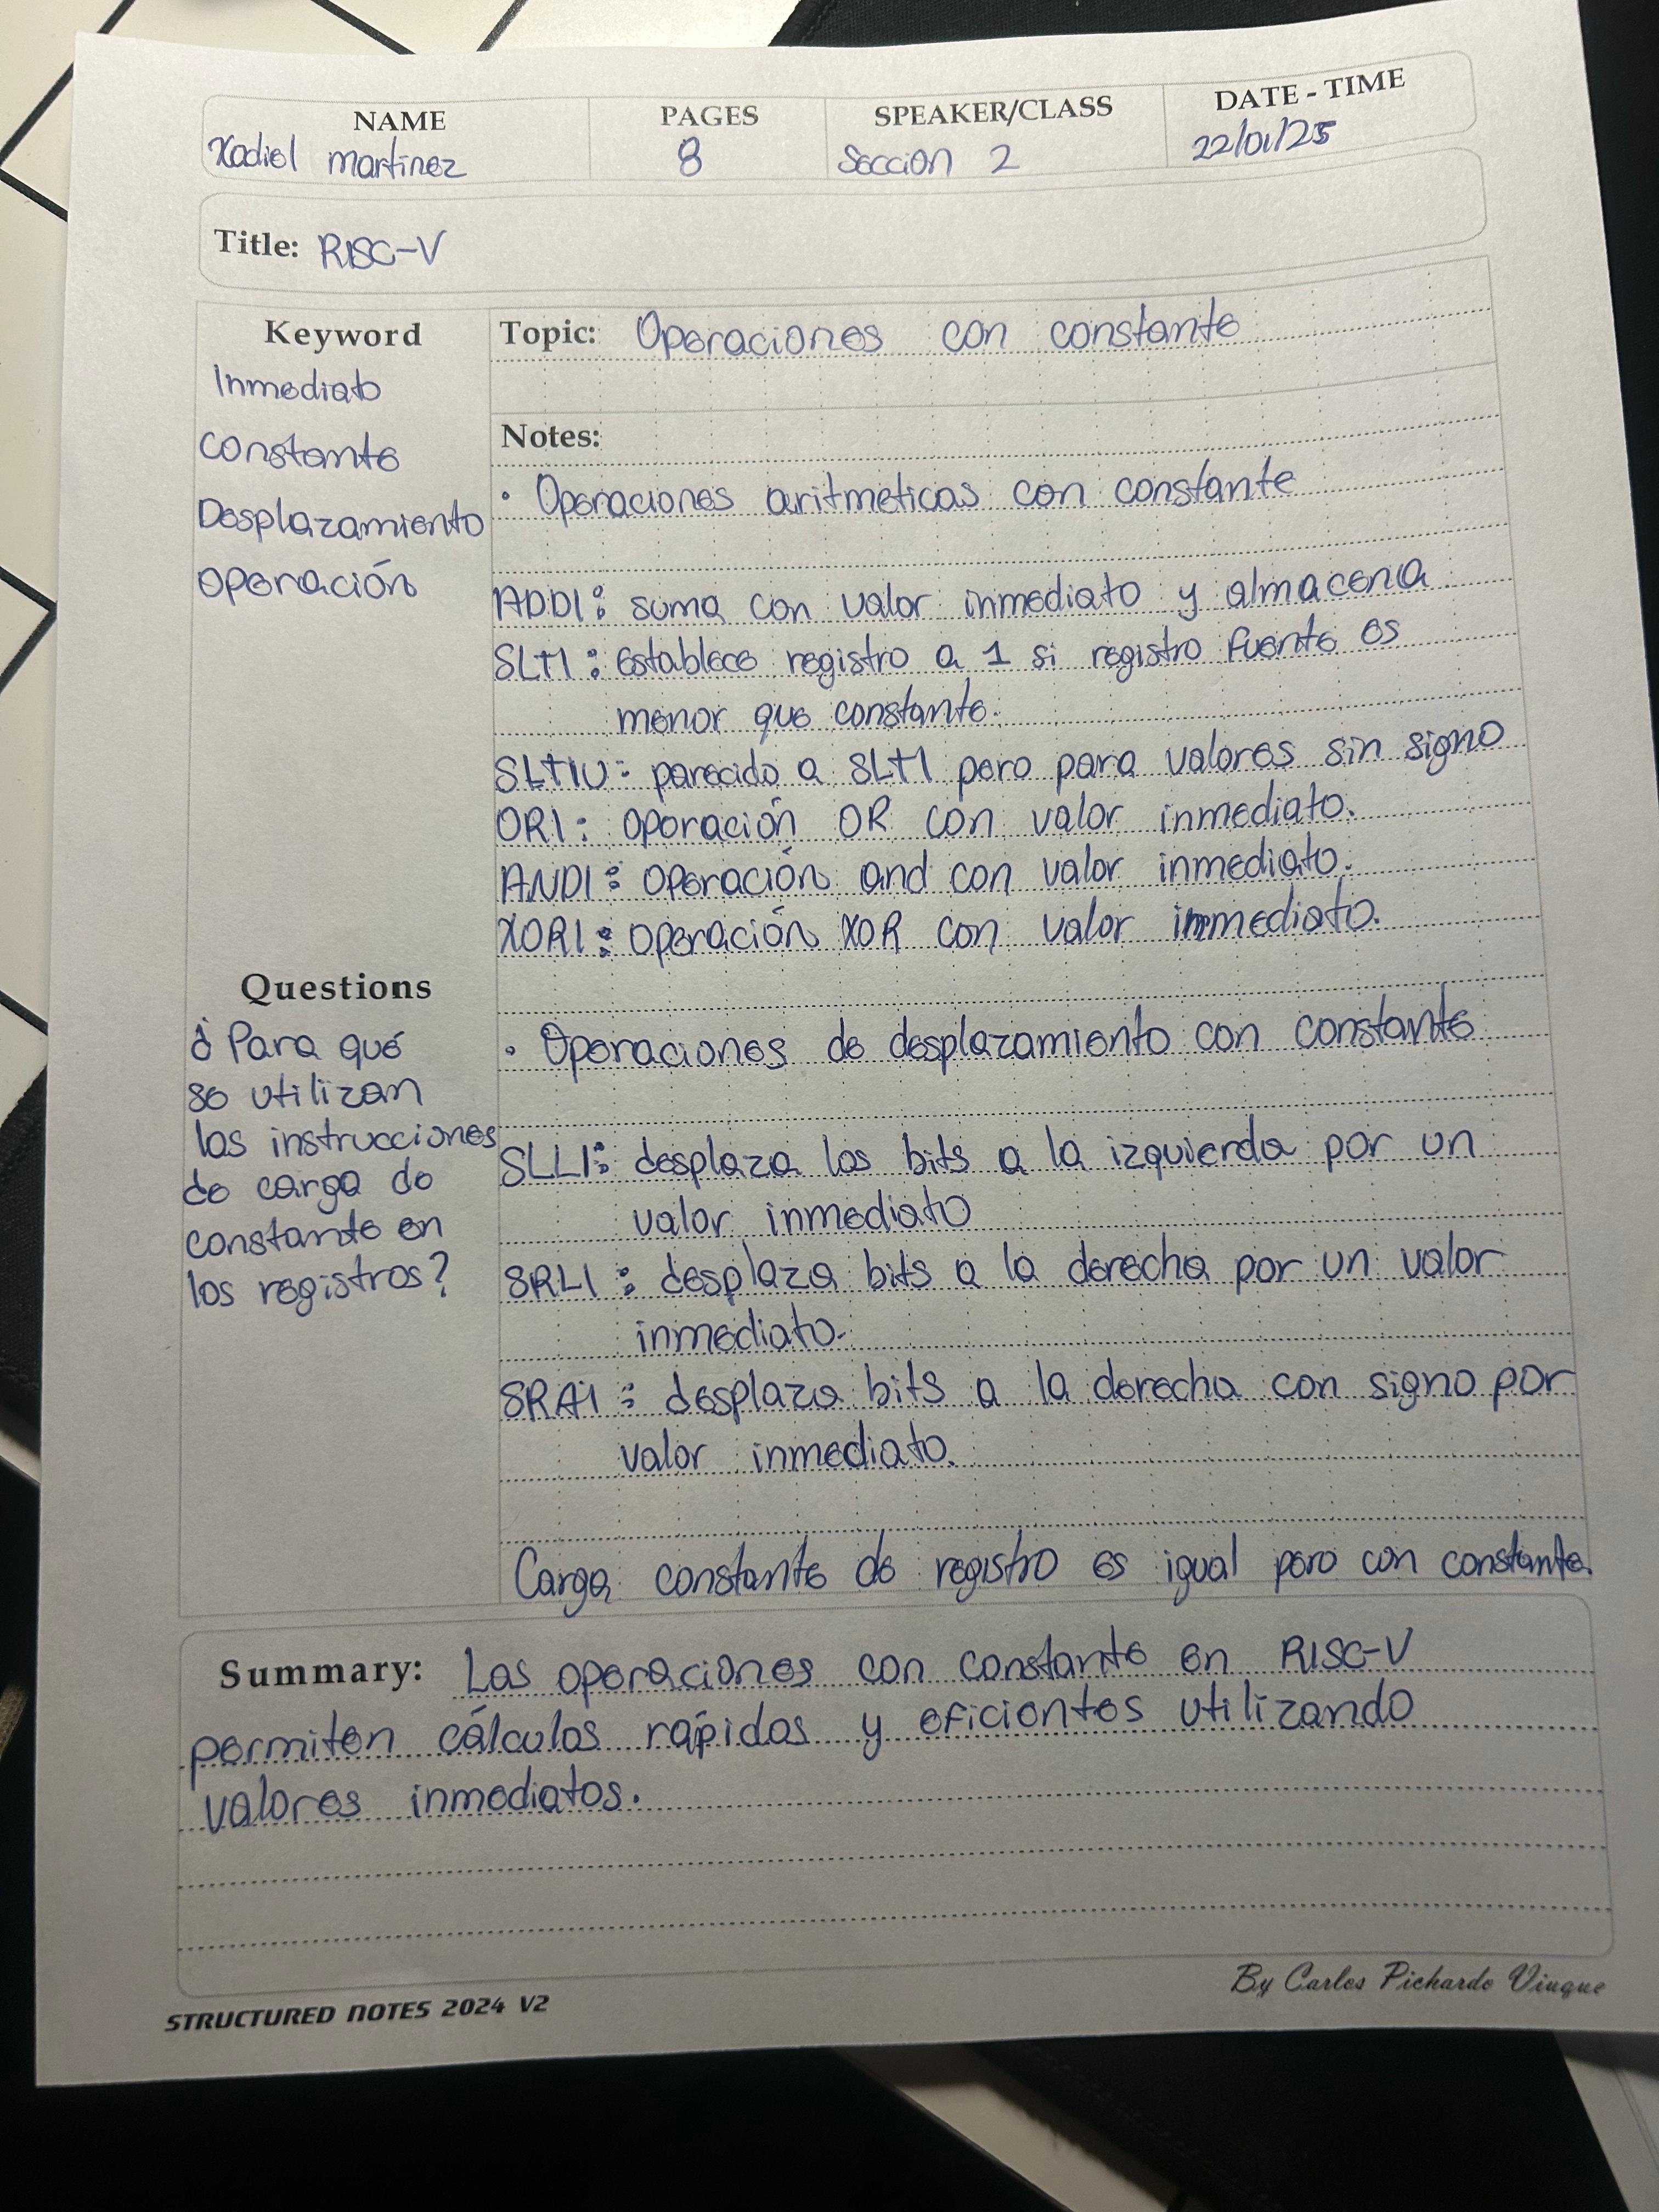 NAME
PAGES
SPEAKER/CLASS
DATE - TIME
Xadiel martinez
8
Sección 2
22/01/25
Title: RISC-V
Keyword
Inmediato
constante
Desplazamiento
operación
Topic: Operaciones con constante
Notes:
· Operaciones aritmeticas con constante
ADDI: suma con valor inmediato y almacena
SLTI: Establece registro a 1 si registro fuente es
menor que constante.
SLTIU: parecido a SLTI pero para valores sin signo
ORI: operación OR con valor inmediato.
ANDI: operación and con valor inmediato.
XORI: operación XOR con valor inmediato.
Questions
¿Para qué
se utilizan
las instrucciones
de carga de
constante en
los registros?
· Operaciones de desplazamiento con constante
SLLI: desplaza los bits a la izquierda por un
valor inmediato
SRLI: desplaza bits a la derecha por un valor
inmediato.
SRAI: desplaza bits a la derecha con signo por
valor inmediato.
Carga constante de registro es igual pero con constante.
Summary: Las operaciones con constante en RISC-V
permiten cálculos rápidos y eficientes utilizando
valores inmediatos.
By Carlos Pichardo Viuque
STRUCTURED NOTES 2024 V2